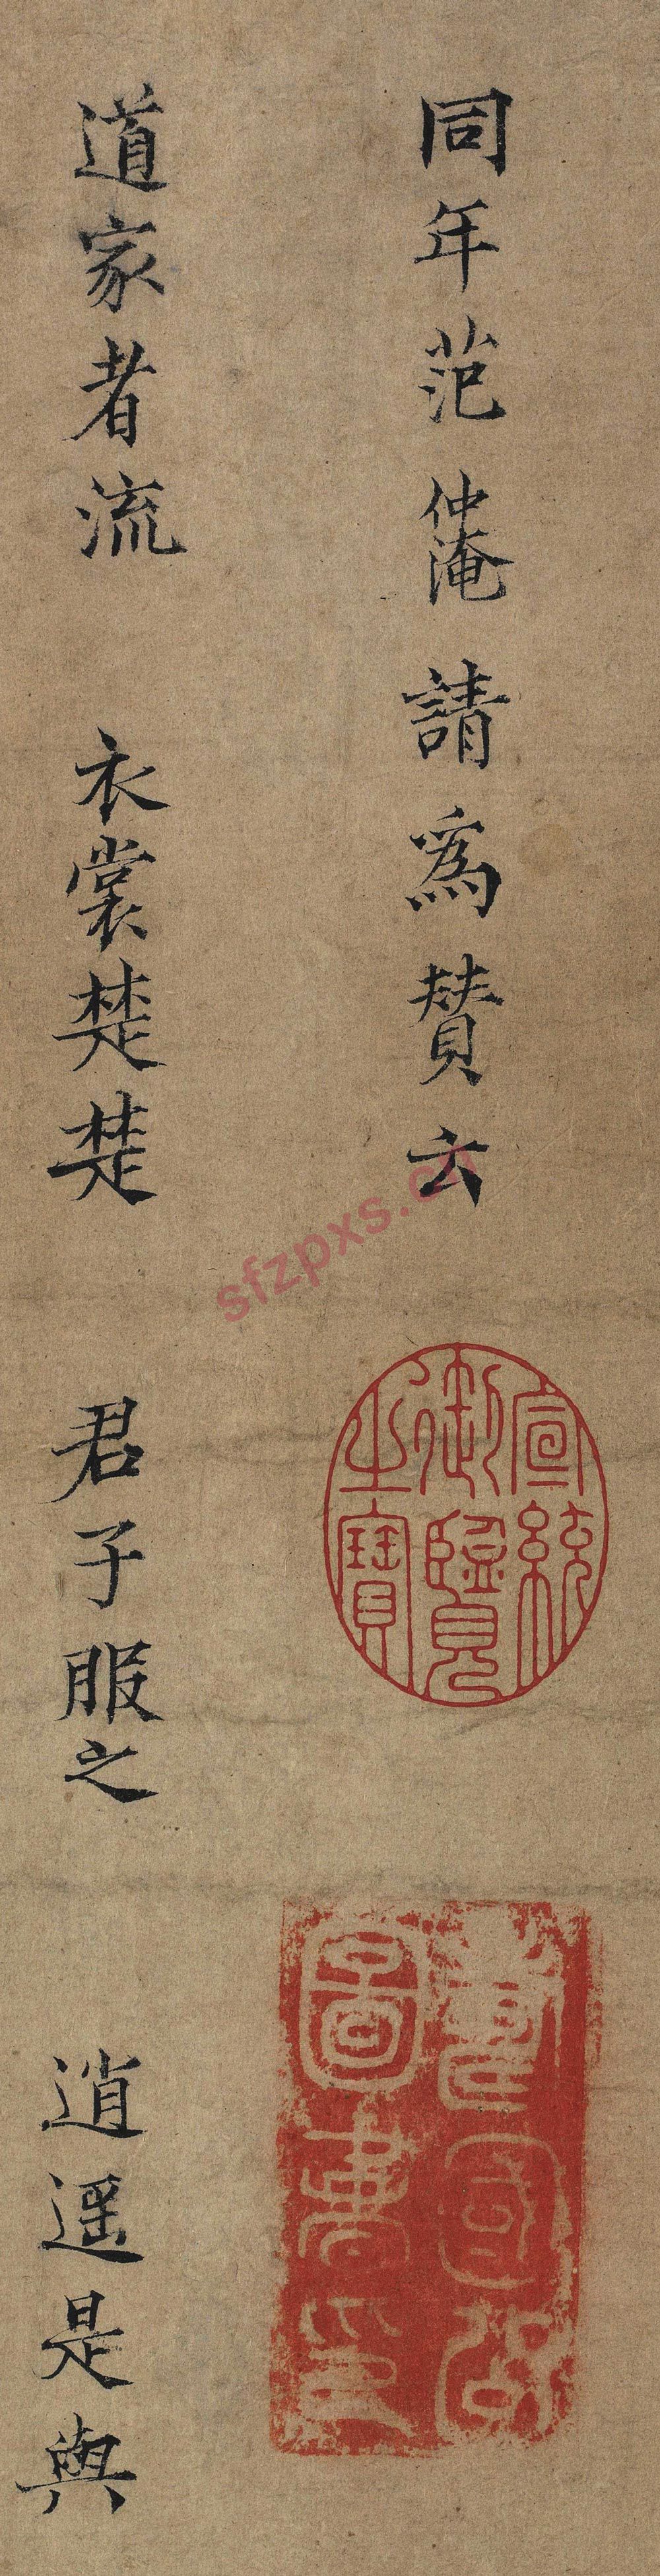 同年范仲淹請爲贊云
道家者流　衣裳楚楚　君子服之　逍遥是與
宣統御覽之寶
sfzpxs.cn